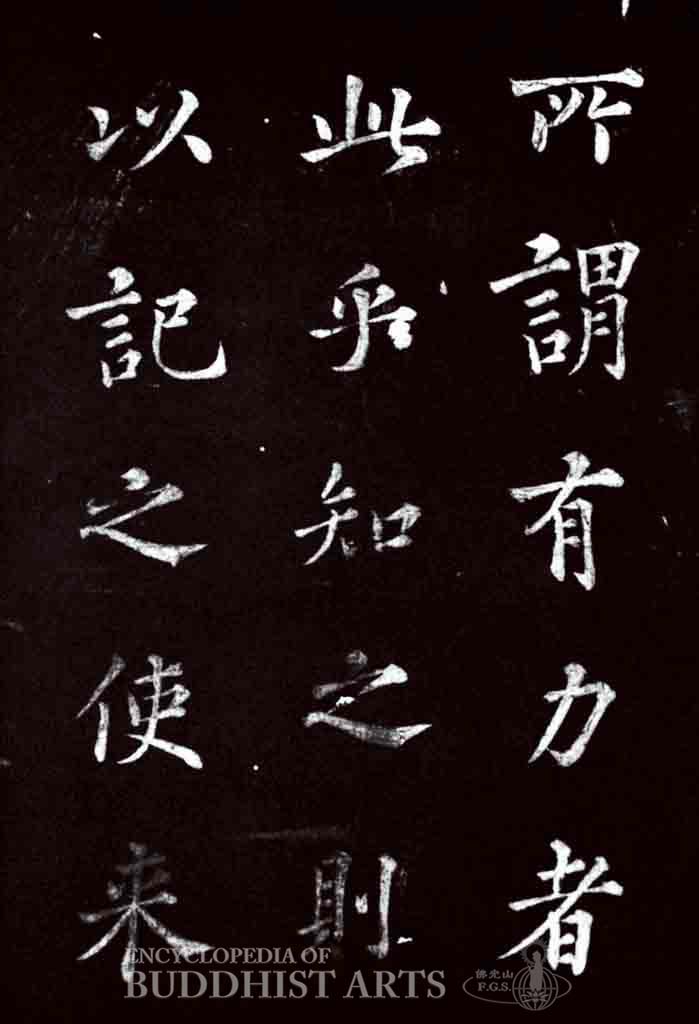 所謂有力者
此乎知之則
以記之使来
ENCYCLOPEDIA OF
BUDDHIST ARTS
佛光山
F.G.S.